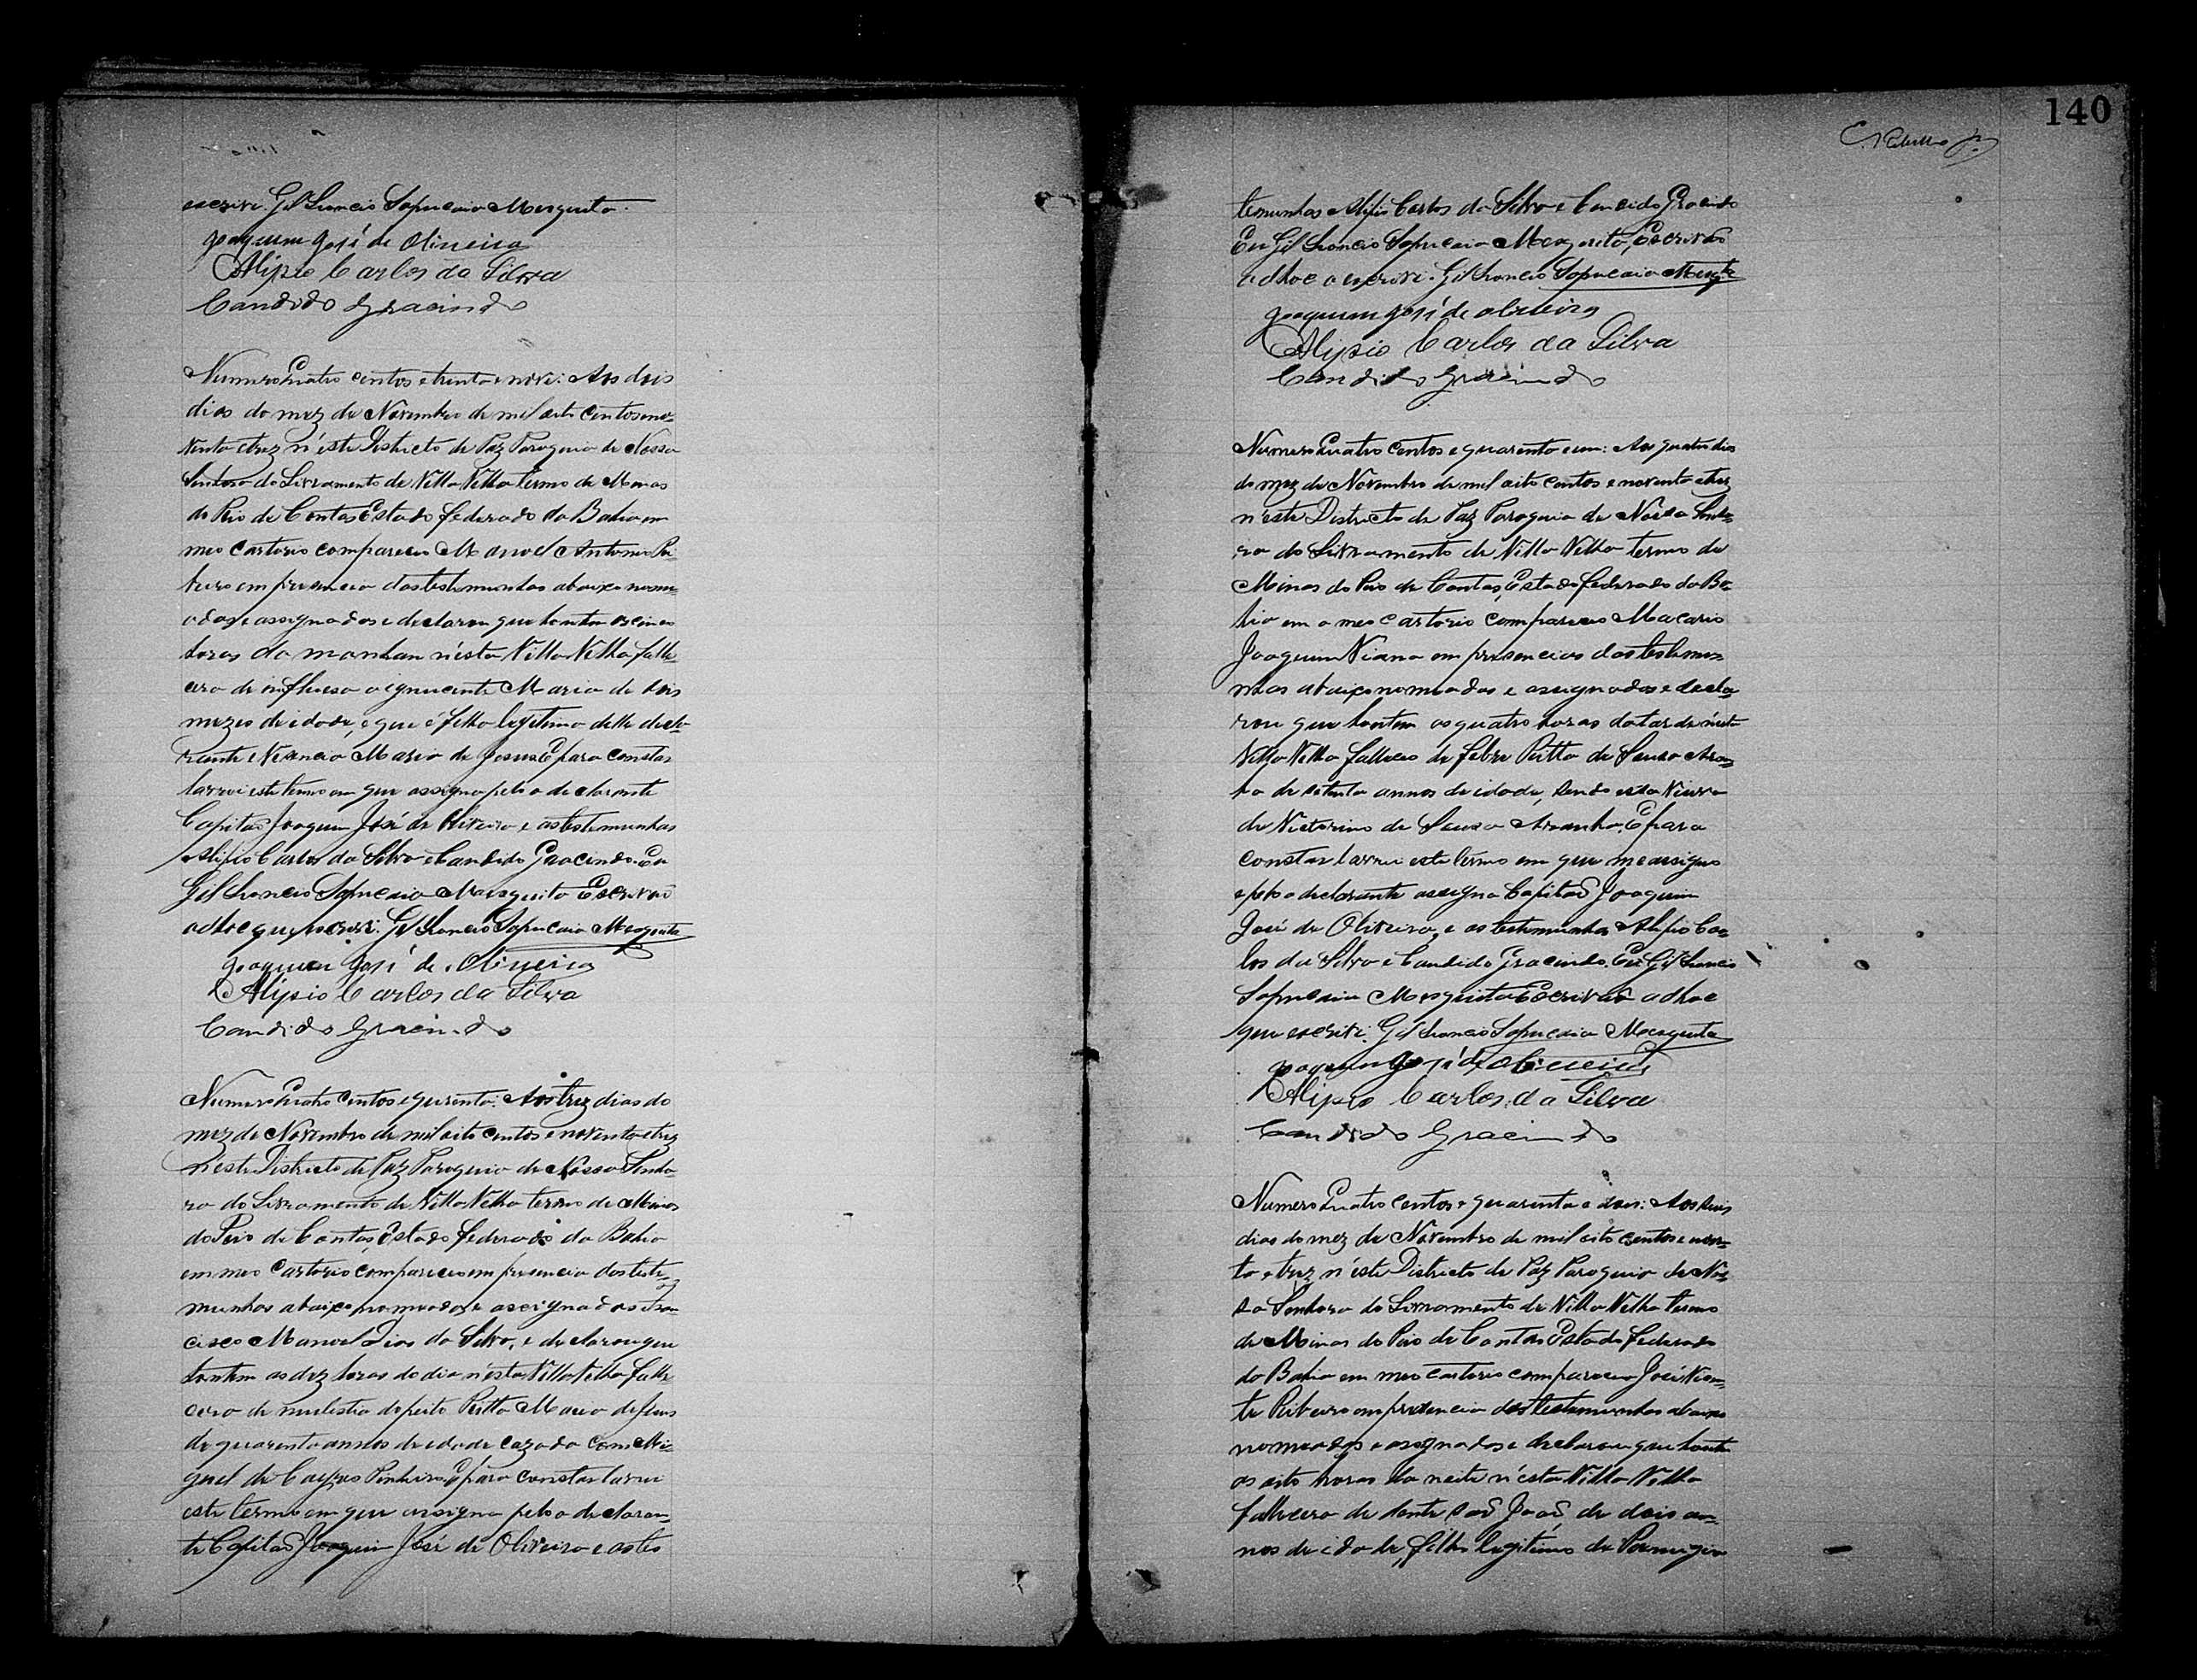 escrivi. Gil Leoncio Sapucaia Mesquita.
Joaquim José de Oliveira
Alipio Carlos da Silva
Candido Gracindo
Numero Quatro centos e trenta e nove: Aos dois
dias do mez de Novembro de mil oito centos e no-
venta e trez n'este Districto de Paz Paroquia de Nossa
Senhora do Livramento de Villa Velha termo de Minas
do Rio de Contas Estado federado da Bahia em
meo cartorio compareceo Manoel Antonio Ri
beiro em presencia das testemunhas abaixo nome-
adas e assignadas e declarou que hontem as cinco
horas da manhan n'esta Villa Velha falle-
ceu de a ignocente Maria de dois
mezes de idade, e que é filha legitima delle decla-
rante e Maria de Jesus E para constar
larvrei este termo em que assigna pelo o declarante
Capitaõ Joaquim José de Oliveira e as testemunhas
Alipio Carlos da Silva e Candido Gracindo. Eu
Gil Leoncio Sapucaia Mesquita Escrivaõ
adhoc que escrivi. Gil Leoncio Sapucaia Mesquita
Joaquim José de Oliveira
Alipio Carlos da Silva
Candido Gracindo
Numero Quatro centos e qurenta: Aos trez dias do
mez de Novembro de mil oito centos e noventa e trez
n'este Districto de Paz Paroquia de Nossa Senho
ra do Livramento de Villa Velha termo de Minas
do Rio de Contas, Estado federado da Bahia
em meo cartorio compareceo em presencia das teste-
munhas abaixo nomeadas e assignadas Fran
cisco Manoel Dias da Silva, e declarou que
hontem as dez horas do dia n'esta Villa Velha falle
ceo de mulestia do peito Ritta Maria de Jesus
de quarenta annos de idade cazada com Mi-
guel de Pinheiro. E para constar larvrei
este termo em que assigna pelo o declaran-
te Capitaõ Joaquim José de Oliveira e as tes
140
temunhas Alipio Carlos da Silva e Candido Gracindo
Eu Gil Leoncio Sapucaia Mesquita, Escrivaõ
adhoc o escrivi. Gil Leoncio Sapucaia Mesqta
Joaquim José de Oliveira
Alipio Carlos da Silva
Candido Gracindo
Numero Quatro centos e quarenta e um: Aos quatro dias
do mez de Novembro de mil oito centos e noventa e trez
n'este Districto de Paz Paroquia de Nossa Senho-
ra do Livramento de Villa Velha termo de
Minas do Rio de Contas, Estado federado da Ba-
hia em o meo cartorio compareceo Macario
Joaquim Viana em presencia das testemu-
nhas abaixo nomeadas e assignadas e decla-
rou que hontem as quatro horas da tarde n'esta
Villa Velha falleceo de febre Ritta de Souza Aran-
ha de setenta annos de idade, sendo esta Viuva
de Victorino de Souza Aranha. E para
constar larvrei este termo em que me assigno
e pelo o declarante assigna Capitaõ Joaquim
José de Oliveira, e as testemunhas Alipio Car-
los da Silva e Candido Gracindo. Eu Gil Leoncio
Sapucaia Mesquita Escrivaõ adhoc
que escrivi. Gil Leoncio Sapucaia Mesquita
Joaquim José de Oliveira
Alipio Carlos da Silva
Candido Gracindo
Numero Quatro centos e quarenta e dois: Aos seis
dias do mez de Novembro de mil oito centos e noven-
ta e trez n'este Districto de Paz Paroquia de Nos-
sa Senhora do Livramento de Villa Velha termo
de Minas do Rio de Contas Estado federado
da Bahia em meo cartorio compareceo José Vicen-
te Ribeiro em presencia das testemunhas abaixo
nomeadas e assignadas e declarou que hontem
as oito horas da noite n'esta Villa Velha
falleceo de João, de dois an-
nos de idade, filho legitimo de